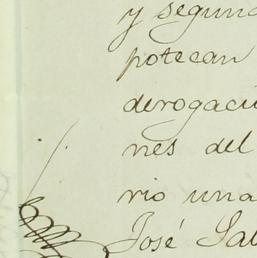 y segund
potecan
derogaci
nes del
rio una
José Sal